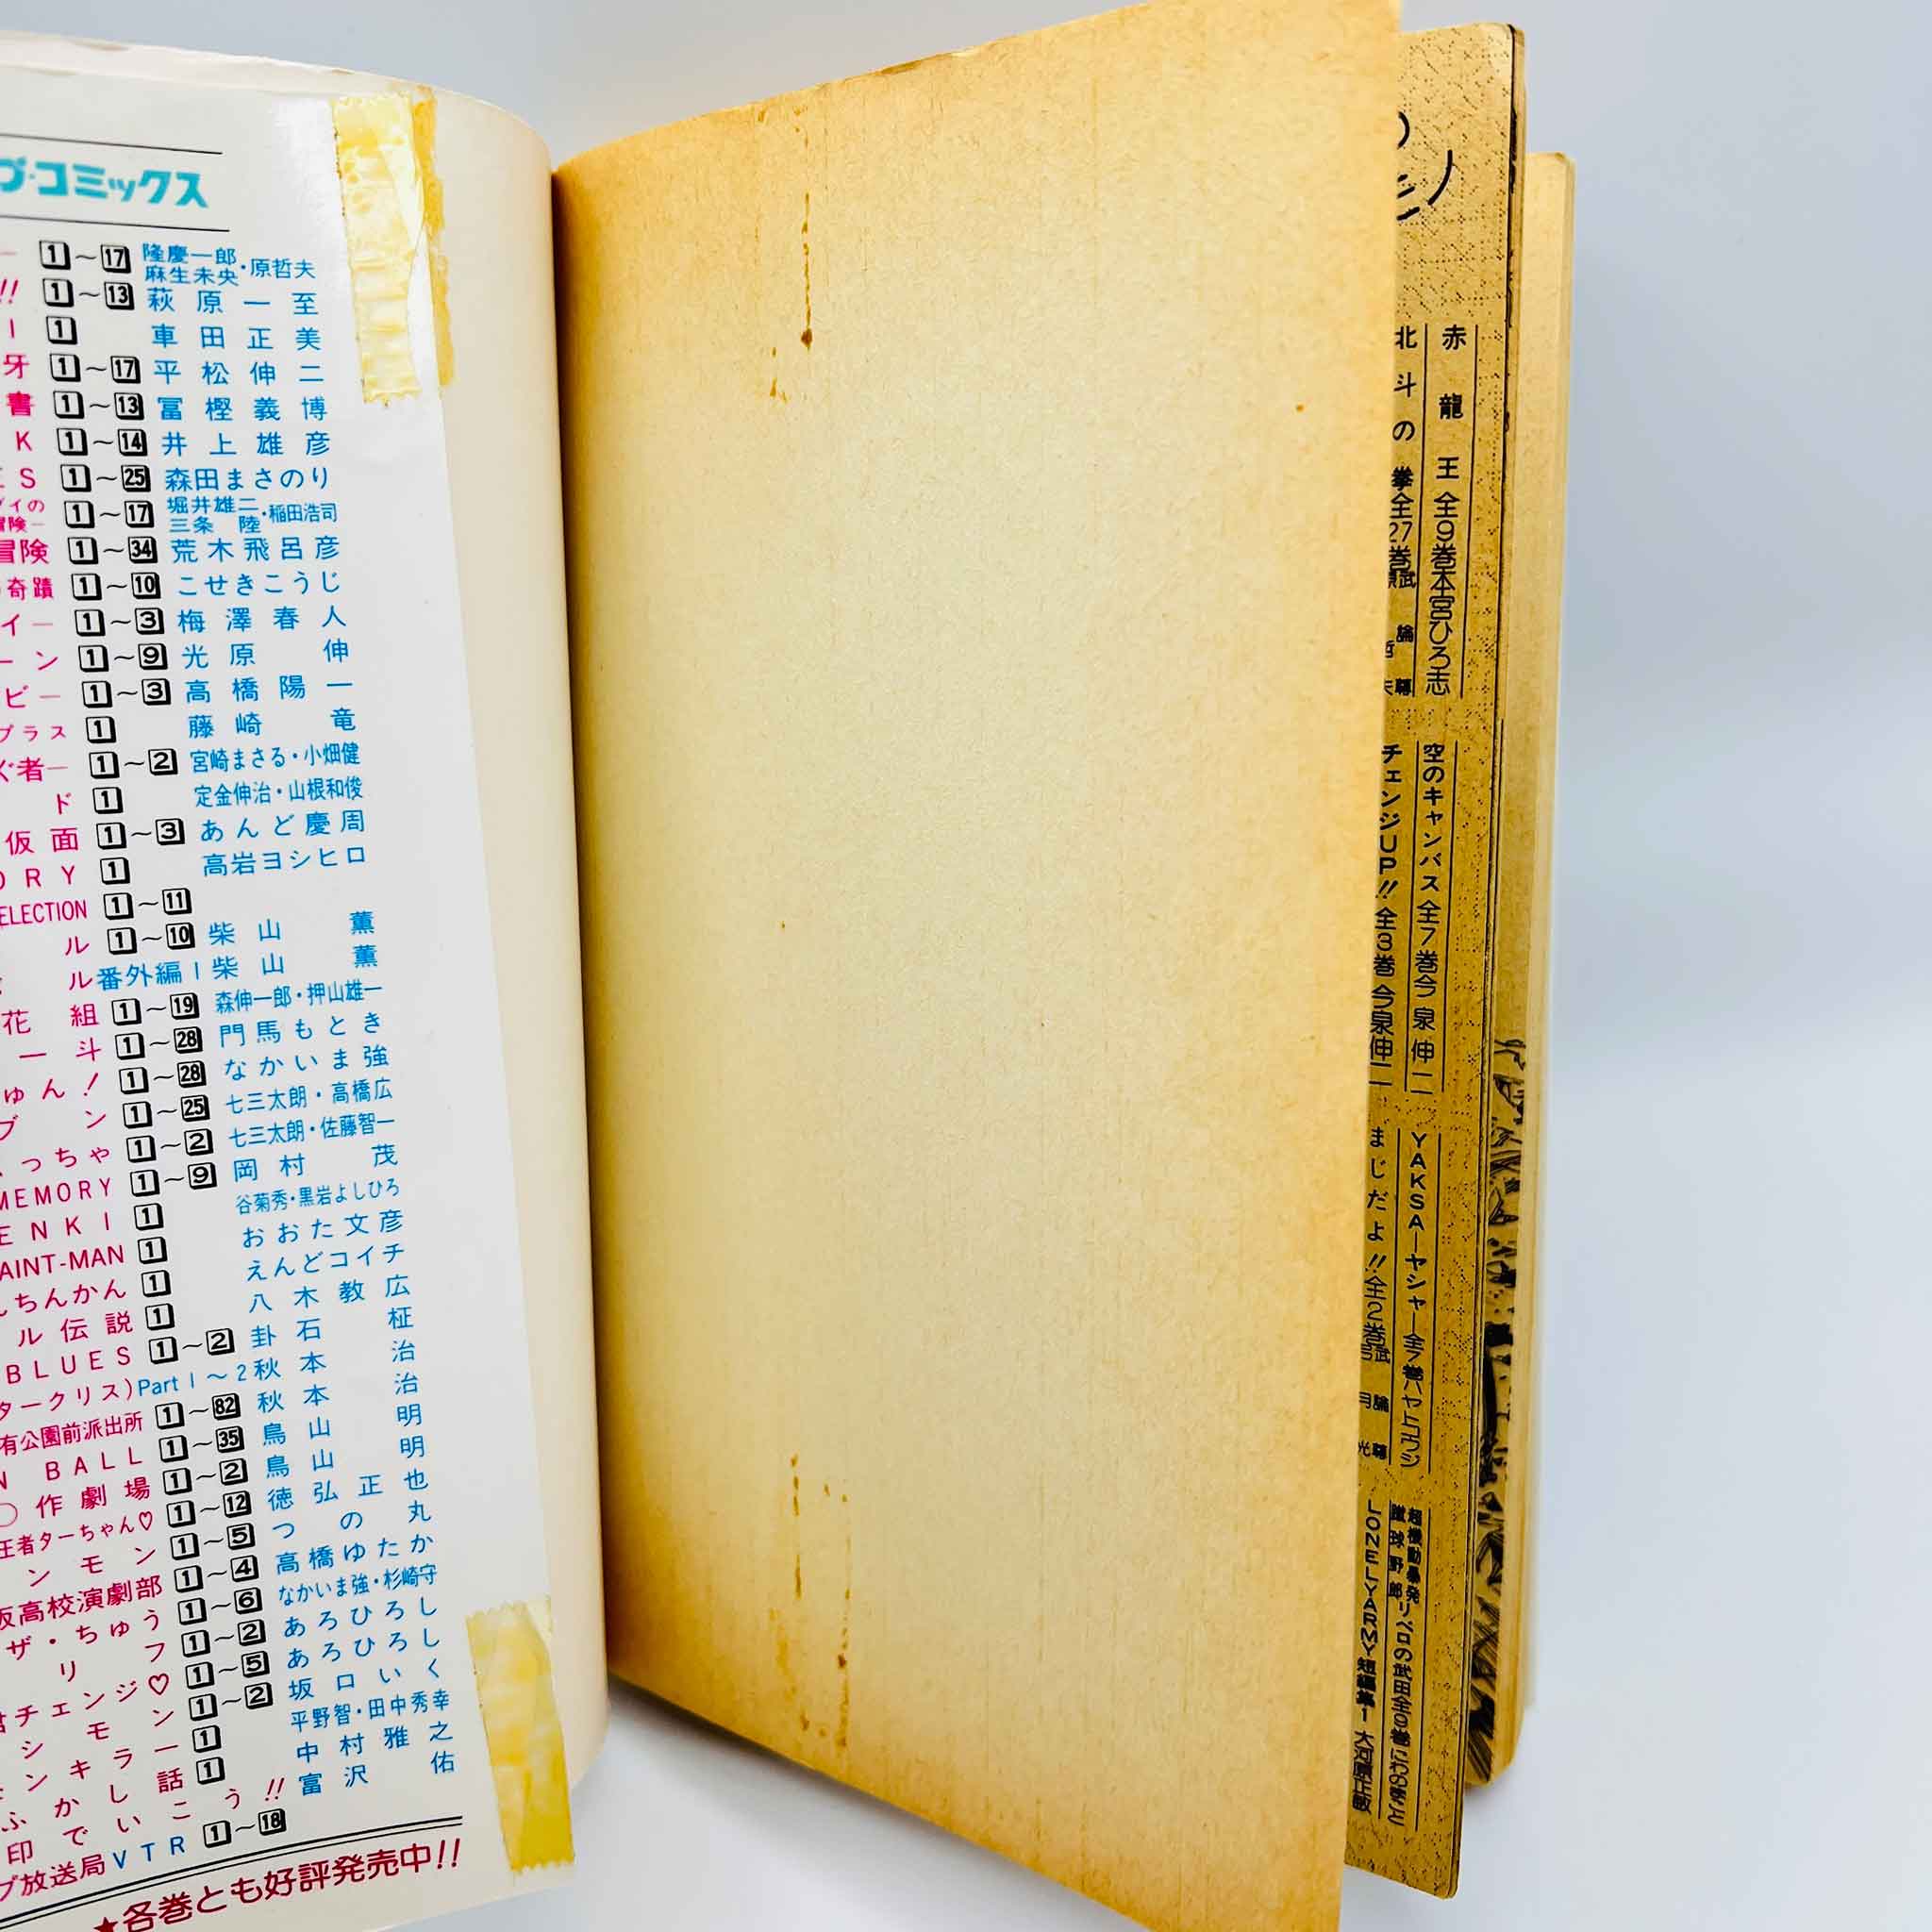 プ・コミックス
ー 1～17 隆慶一郎 麻生未央・原哲夫
!! 1～13 萩原一至
1 車田正美
牙 1～17 平松伸二
書 1～13 冨樫義博
K 1～14 井上雄彦
ES 1～25 森田まさのり
イの 冒険― 1～17 堀井雄二 三条陸・稲田浩司
冒険 1～34 荒木飛呂彦
奇蹟 1～10 こせきこうじ
イー 1～3 梅澤春人
ーン 1～9 光原伸
ビー 1～3 高橋陽一
プラス 1 藤崎竜
ぐ者― 1～2 宮崎まさる・小畑健
ド 1 定金伸治・山根和俊
仮面 1～3 あんど慶周
ORY 1 高岩ヨシヒロ
ELECTION 1～11
ル 1～10 柴山薫
ル番外編1 柴山薫
花組 1～19 森伸一郎・押山雄一
一斗 1～28 門馬もとき
ゅん! 1～28 なかいま強
ブン 1～25 七三太朗・高橋広
っちゃ 1～2 七三太朗・佐藤智一
MEMORY 1～9 岡村茂
ENKI 1 谷菊秀・黒岩よしひろ
AINT-MAN 1 おおた文彦
んちんかん 1 えんどコイチ
ル伝説 1 八木教広
BLUES 1～2 卦石柾
タークリス)Part1～2 秋本治
有公園前派出所 1～82 秋本治
N BALL 1～35 鳥山明
○作劇場 1～2 鳥山明
王者ターちゃん♡ 1～12 徳弘正也
ンモン 1～5 つの丸
坂高校演劇部 1～4 高橋ゆたか
ザ・ちゅう 1～6 なかいま強・杉崎守
リフ 1～2 あろひろし
君チェンジ♡ 1～5 あろひろし
シモン 1～2 坂口いく
ンキラー 1 平野智・田中秀幸
ふかし話 1 中村雅之
印でいこう!! 富沢佑
プ放送局VTR 1～18
★各巻とも好評発売中!!
赤龍王 全9巻 本宮ひろ志
空のキャンバス 全7巻 今泉伸二
YAKSA―ヤシャ― 全7巻 ハヤトコウジ
超機動暴発蹴球野郎 リベロの武田 全9巻 にわのまこと
北斗の拳 全27巻 武論尊 原哲夫
チェンジUP!! 全3巻 今泉伸二
まじだよ!! 全2巻 武論尊 弓月光
LONELYARMY短編集1 大河原正敏